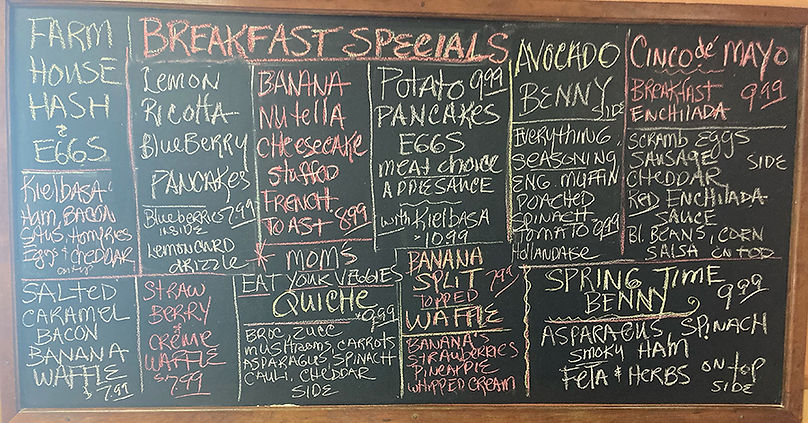 BREAKFAST SPECIALS
FARM
HOUSE
HASH
&
EGGS
Kielbasa
Ham, BACON
Eggs & CHEDDAR
on top
LEMON
RICOTTA
BLUEBERRY
PANCAKES
Blueberries 7.99
INSIDE
LEMON CURD
drizzle
BANANA
Nutella
CHEESECAKE
Stuffed
FRENCH
TOAST 8.99
POTATO 9.99
PANCAKES
EGGS
meat choice
APPLESAUCE
with KIELBASA
10.99
AVOCADO
BENNY
SIDE
EVERYTHING
SEASONING
ENG. MUFFIN
POACHED
SPINACH
TOMATO 9.99
Hollandaise
CINCO dé MAYO
BREAKFAST 9.99
ENCHILADA
SCRAMB EGGS
SAUSAGE SIDE
CHEDDAR
RED ENCHILADA
SAUCE
Bl. BEANS, CORN
SALSA ON TOP
SALTED
CARAMEL
BACON
BANANA
WAFFLE
$7.99
STRAW
BERRY
&
CRÈME
WAFFLE
$7.99
* MOM'S
EAT YOUR VEGGIES
QUICHE
$9.99
BROC, ZUCC
MUSHROOMS, CARROTS
ASPARAGUS, SPINACH
CAULI, CHEDDAR
SIDE
BANANA
SPLIT 7.99
TOPPED
WAFFLE
BANANA'S
STRAWBERRIES
PINEAPPLE
WHIPPED CREAM
SPRING TIME
BENNY 9.99
ASPARAGUS, SPINACH
SMOKY HAM
FETA & HERBS ON TOP
SIDE